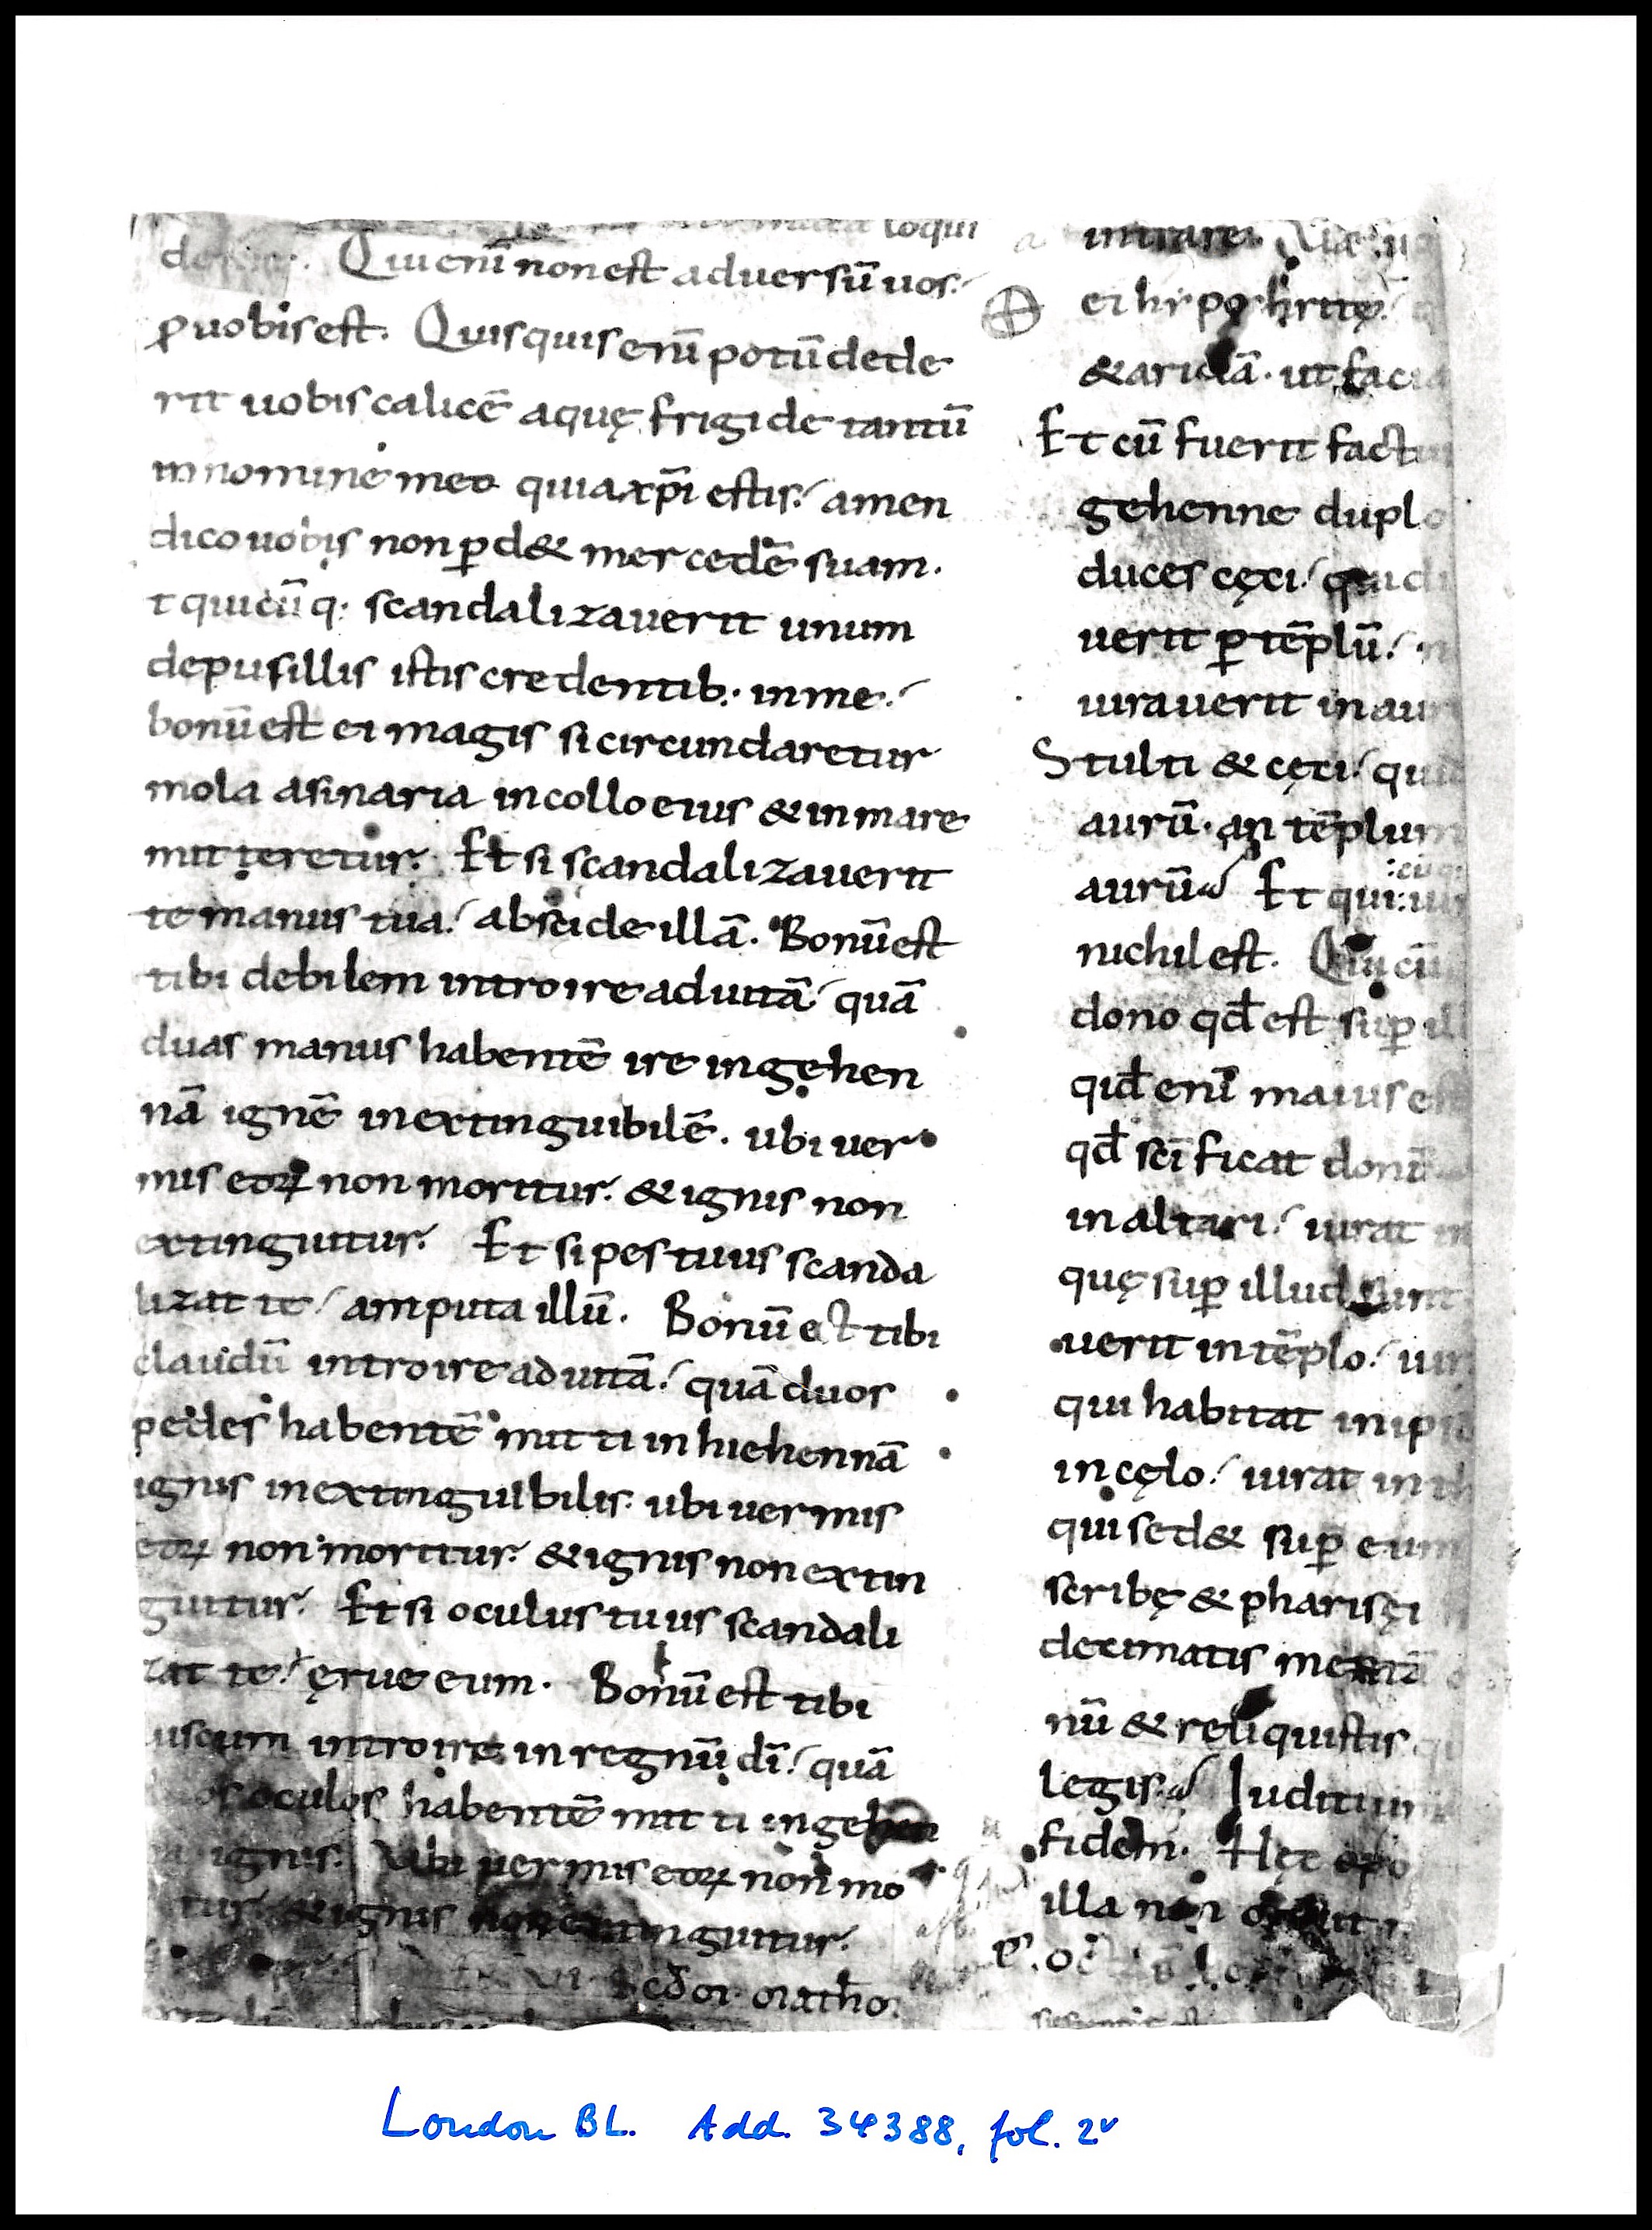 loqui
de me. Qui enī non est aduersū uos.
ꝓ uobis est. Quisquis enī potū dede
rit uobis calicē aquę frigide tantū
in nomine meo quia xp̄i estis. amen
dico uobis non ꝑd& mercedē suam.
t quicūq; scandalizauerit unum
de pusillis istis credentib. in me.
bonū est ei magis si circundaretur
mola asinaria in collo eius & in mare
mitteretur. Et si scandalizauerit
te manus tua. abscide illā. Bonū est
tibi debilem introire ad uitā quā
duas manus habentē ire in gehen
nā ignē inextinguibilē. ubi uer
mis eoꝝ non moritur. & ignis non
extinguitur. Et si pes tuus scanda
lizat te amputa illū. Bonū est tibi
claudū introire ad uitā. quā duos
pedes habentē mitti in hiehennā
ignis inextinguibilis. ubi uermis
eoꝝ non moritur. & ignis non extin
guitur. Et si oculus tuus scandali
zat te. ęrue eum. Bonū est tibi
uscum introire in regnū dī. quā
os oculos habentē mitti in gehen
ignis. Ubi uermis eoꝝ non mo
tur & ignis non extinguitur.
intrare. Ue
ei hypochritę
& aridā. ut facia
Et cū fuerit factu
gehenne duplo
duces cęci. qui di
uerit ꝑ tēplū. n
iurauerit in aur
Stulti & cęci. quid
aurū. an tēplum
aurū Et qui iu
nichil est. Quicū
dono qđ est suꝑ ill
qid enī maius est
qđ scīficat donū
in altari. iurat in
quę suꝑ illud sunt
uerit in tēplo. iur
qui habitat in ip
in cęlo. iurat in th
qui sed& suꝑ eum
scribę & pharisęi
decimatis mentā
nū & reliquistis qu
legis. Iuditium
fidem. Hęc opo
illa non
London BL. Add. 34388, fol. 2v